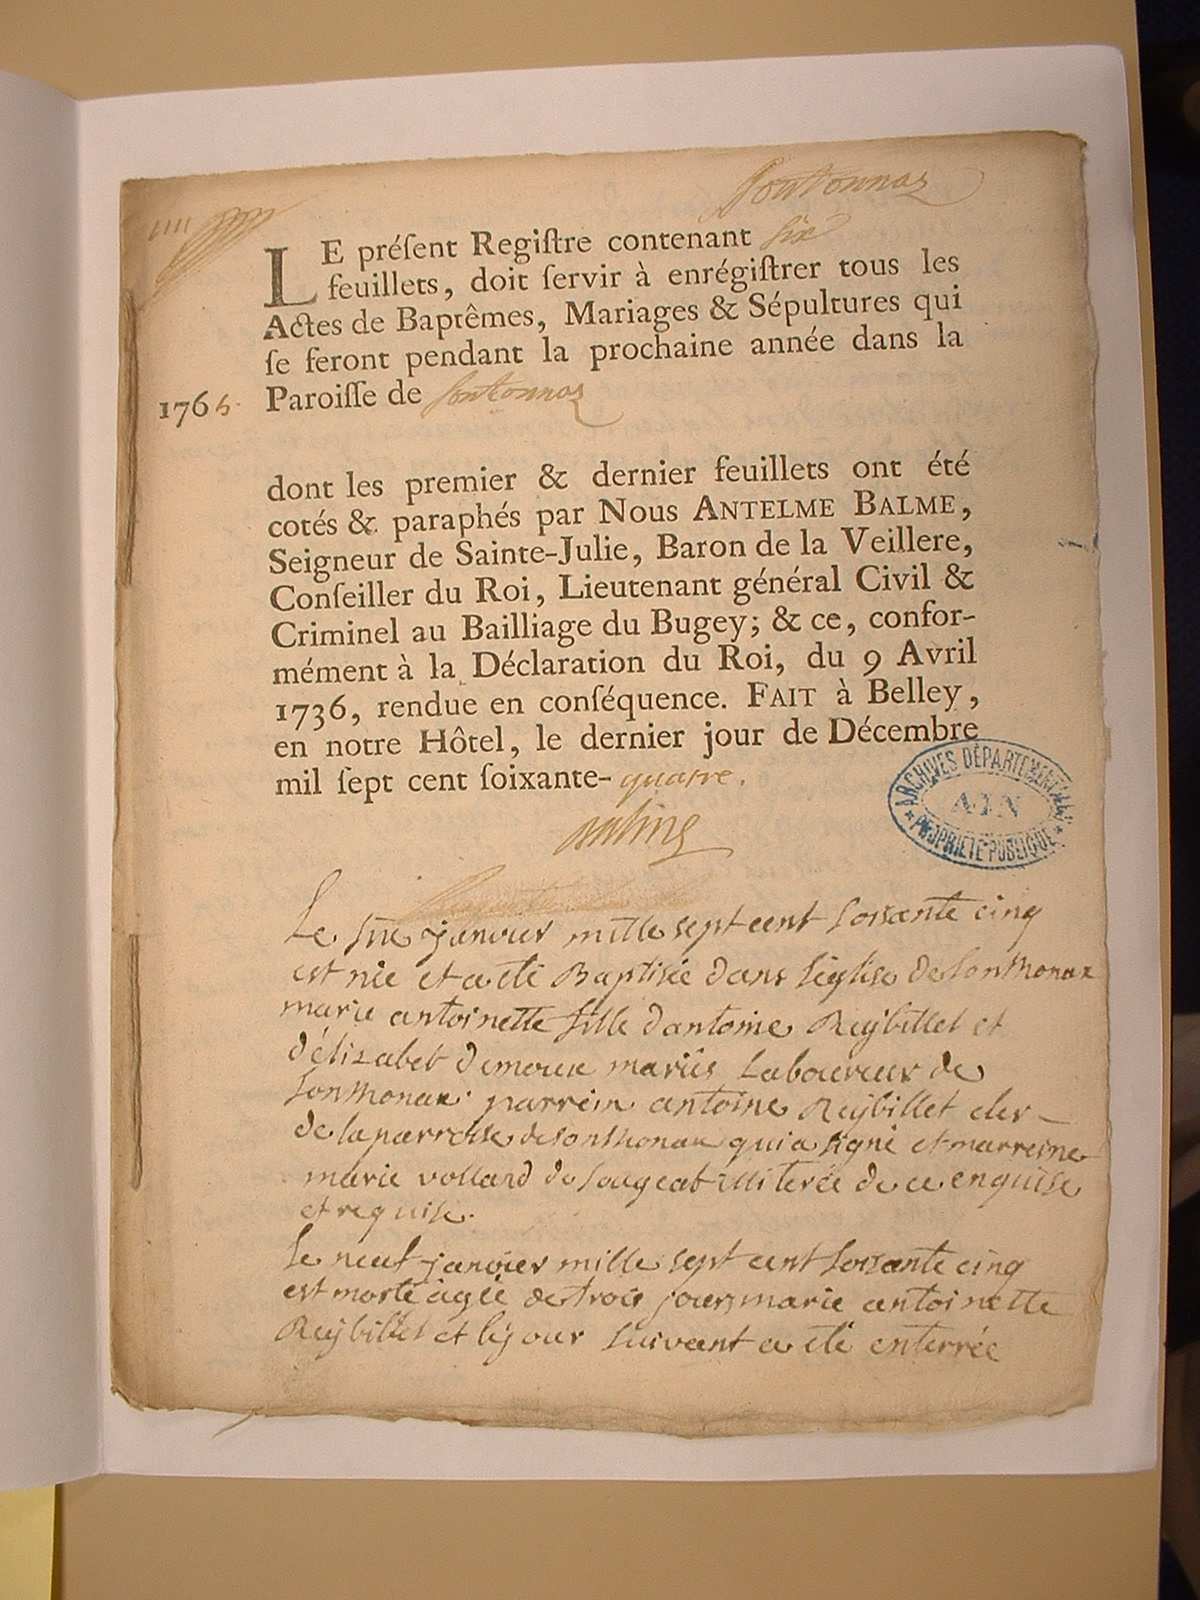 Sontonnaz
LE préſent Regiſtre contenant six
feuillets, doit ſervir à enrégiſtrer tous les
Actes de Baptêmes, Mariages & Sépultures qui
ſe feront pendant la prochaine année dans la
1765. Paroiſſe de Sontonnaz
dont les premier & dernier feuillets ont été
cotés & paraphés par Nous ANTELME BALME,
Seigneur de Sainte-Julie, Baron de la Veillere,
Conſeiller du Roi, Lieutenant général Civil &
Criminel au Bailliage du Bugey; & ce, confor-
mément à la Déclaration du Roi, du 9 Avril
1736, rendue en conſéquence. FAIT à Belley,
en notre Hôtel, le dernier jour de Décembre
mil ſept cent ſoixante-quatre.
ARCHIVES DÉPARTEMENTALES
AIN
PROPRIÉTÉ PUBLIQUE
Le janvier mille sept cent soixante cinq
est née et a été Baptisée dans l'église de Sonthonax
marie antoinette fille d'antoine Reybillet et
d'élizabet demoux mariés Laboureur de
Sonthonax. parrein antoine Reybillet cler
de la parroise de Sonthonax qui a signé et marreine
marie vollard de Sougeat illiterée de ce enquise
et requise.
Le neuf janvier mille sept cent soixante cinq
est morte agée de trois jours marie antoinette
Reybillet et le jour suivant a été enterrée